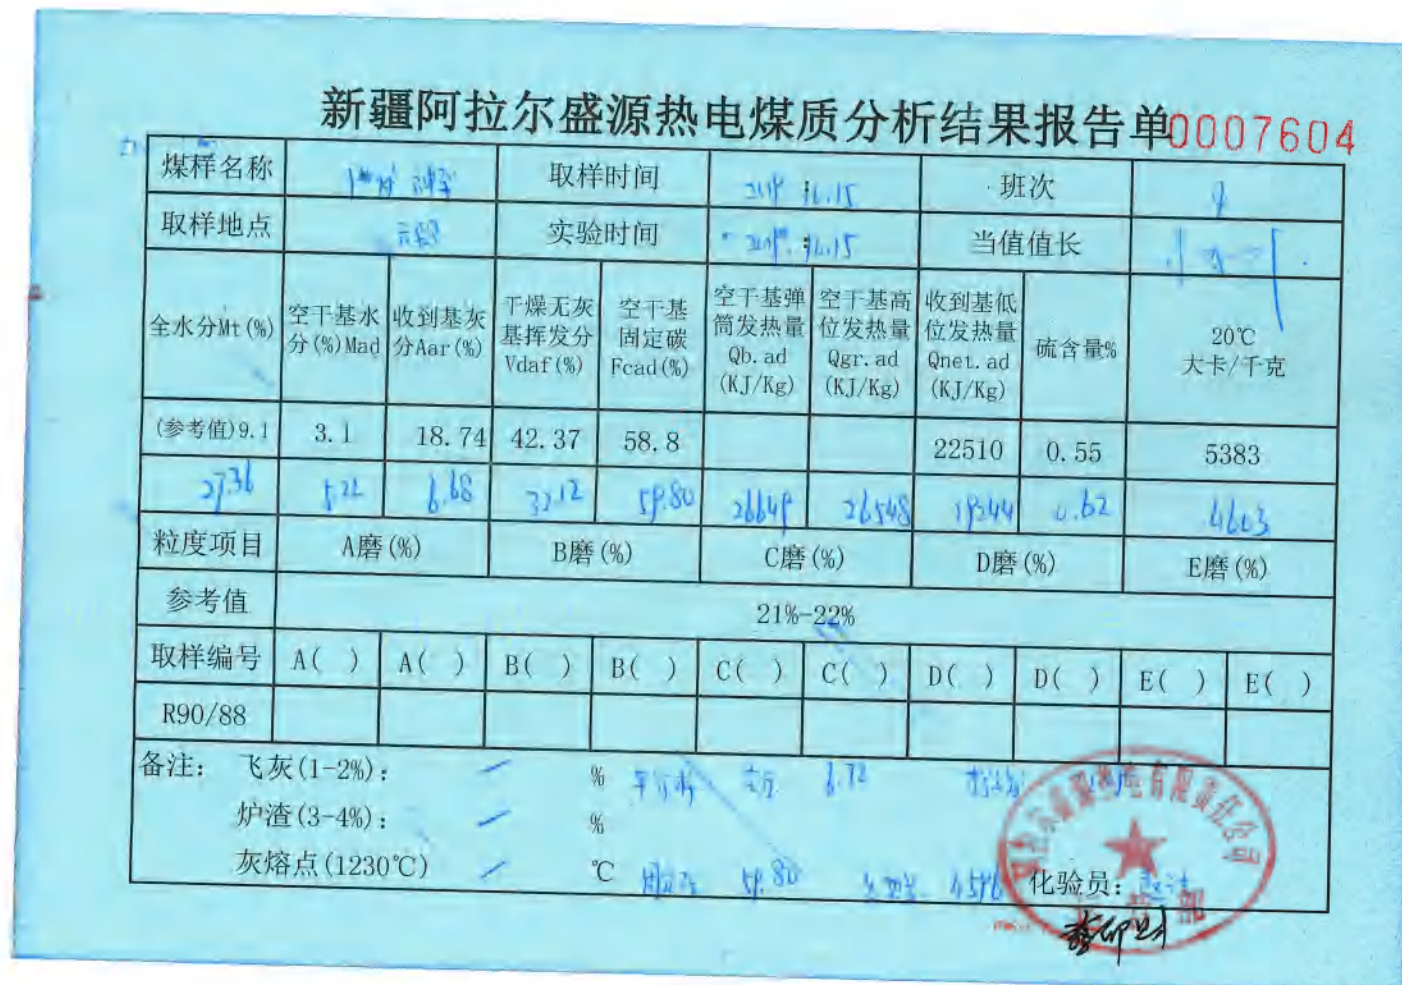 新疆阿拉尔盛源热电煤质分析结果报告单0007604
煤样名称 取样时间 班次
取样地点 实验时间 当值值长
全水分Mt(%) 空干基水分(%)Mad 收到基灰分Aar(%) 干燥无灰基挥发分Vdaf(%) 空干基固定碳Fcad(%) 空干基弹筒发热量Qb.ad(KJ/Kg) 空干基高位发热量Qgr.ad(KJ/Kg) 收到基低位发热量Qnet.ad(KJ/Kg) 硫含量% 20℃大卡/千克
(参考值)9.1 3.1 18.74 42.37 58.8 22510 0.55 5383
27.36 5.22 6.68 59.80 26548 19244 0.62 4603
粒度项目 A磨(%) B磨(%) C磨(%) D磨(%) E磨(%)
参考值 21%-22%
取样编号 A( ) A( ) B( ) B( ) C( ) C( ) D( ) D( ) E( ) E( )
R90/88
备注: 飞灰(1-2%): — % 平行样 6.72
炉渣(3-4%): — %
灰熔点(1230℃) — ℃ 59.80 化验员: